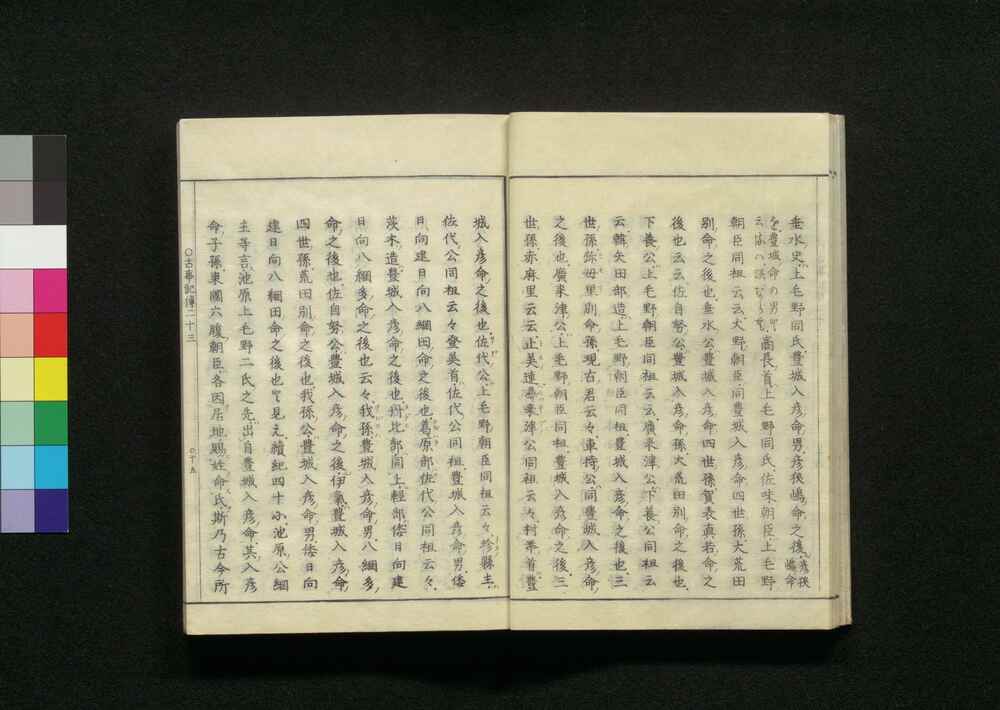 垂水史上毛野同氏豊城入彦命男彦狭嶋命之後彦狭嶋命
を豊城命の男
高長首上毛野同氏佐味朝臣上毛野
朝臣同祖云云大野朝臣同豊城入彦命四世孫大荒田
別命之後也垂水公豊城入彦命四世孫賀表真若命之
後也云云佐自努公豊城入彦命孫大荒田別命之後也
下養公上毛野朝臣同祖云云廣来津公下養公同祖云
云韓矢田部造上毛野朝臣同祖豊城入彦命之後也三
世孫弥母里別命孫現古君云々車持公同豊城入彦命
之後也廣来津公上毛野朝臣同祖豊城入彦命之後三
世孫赤麻里云云止美連尋来津公同祖云々村挙首豊
城入彦命之後也佐代公上毛野朝臣同祖云々珍縣主
佐代公同祖云々登美首佐代公同祖豊城入彦命男倭
日向建日向八綱田命之後也葛原部佐代公同祖云々
茨木造豊城入彦命之後也丹比部同上軽部倭日向建
日向八綱多命之後也云々我孫豊城入彦命男八綱多
命之後也佐自努公豊城入彦命之後伊氣豊城入彦命
四世孫荒田別命之後也我孫公豊城入彦命男倭日向
建日向八綱田命之後也と見え續紀四十小池原公綱
主等言池原上毛野二氏之先出自豊城入彦命其入彦
命子孫東國六腹朝臣各因居地賜姓命氏斯乃古今所
〇古事記傳二十三